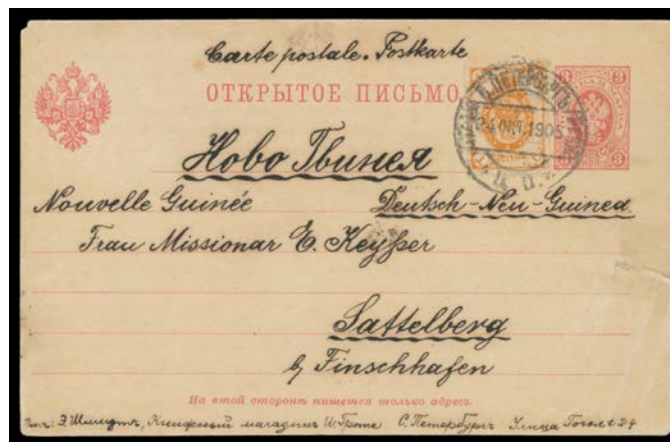 Carte postale. Postkarte
ОТКРЫТОЕ ПИСЬМО
С.ПЕТЕРБУРГЪ
24 ОКТ. 1905
3 3
3 3
Ново Гвинея
Nouvelle Guinée Deutsch-Neu-Guinea.
Frau Missionar E. Keyßer
Sattelberg
b/ Finschhafen
На этой сторонѣ пишется только адресъ.
Э. Шмидтъ, Книжный магазинъ С. Петербургъ Улица Гоголя 24